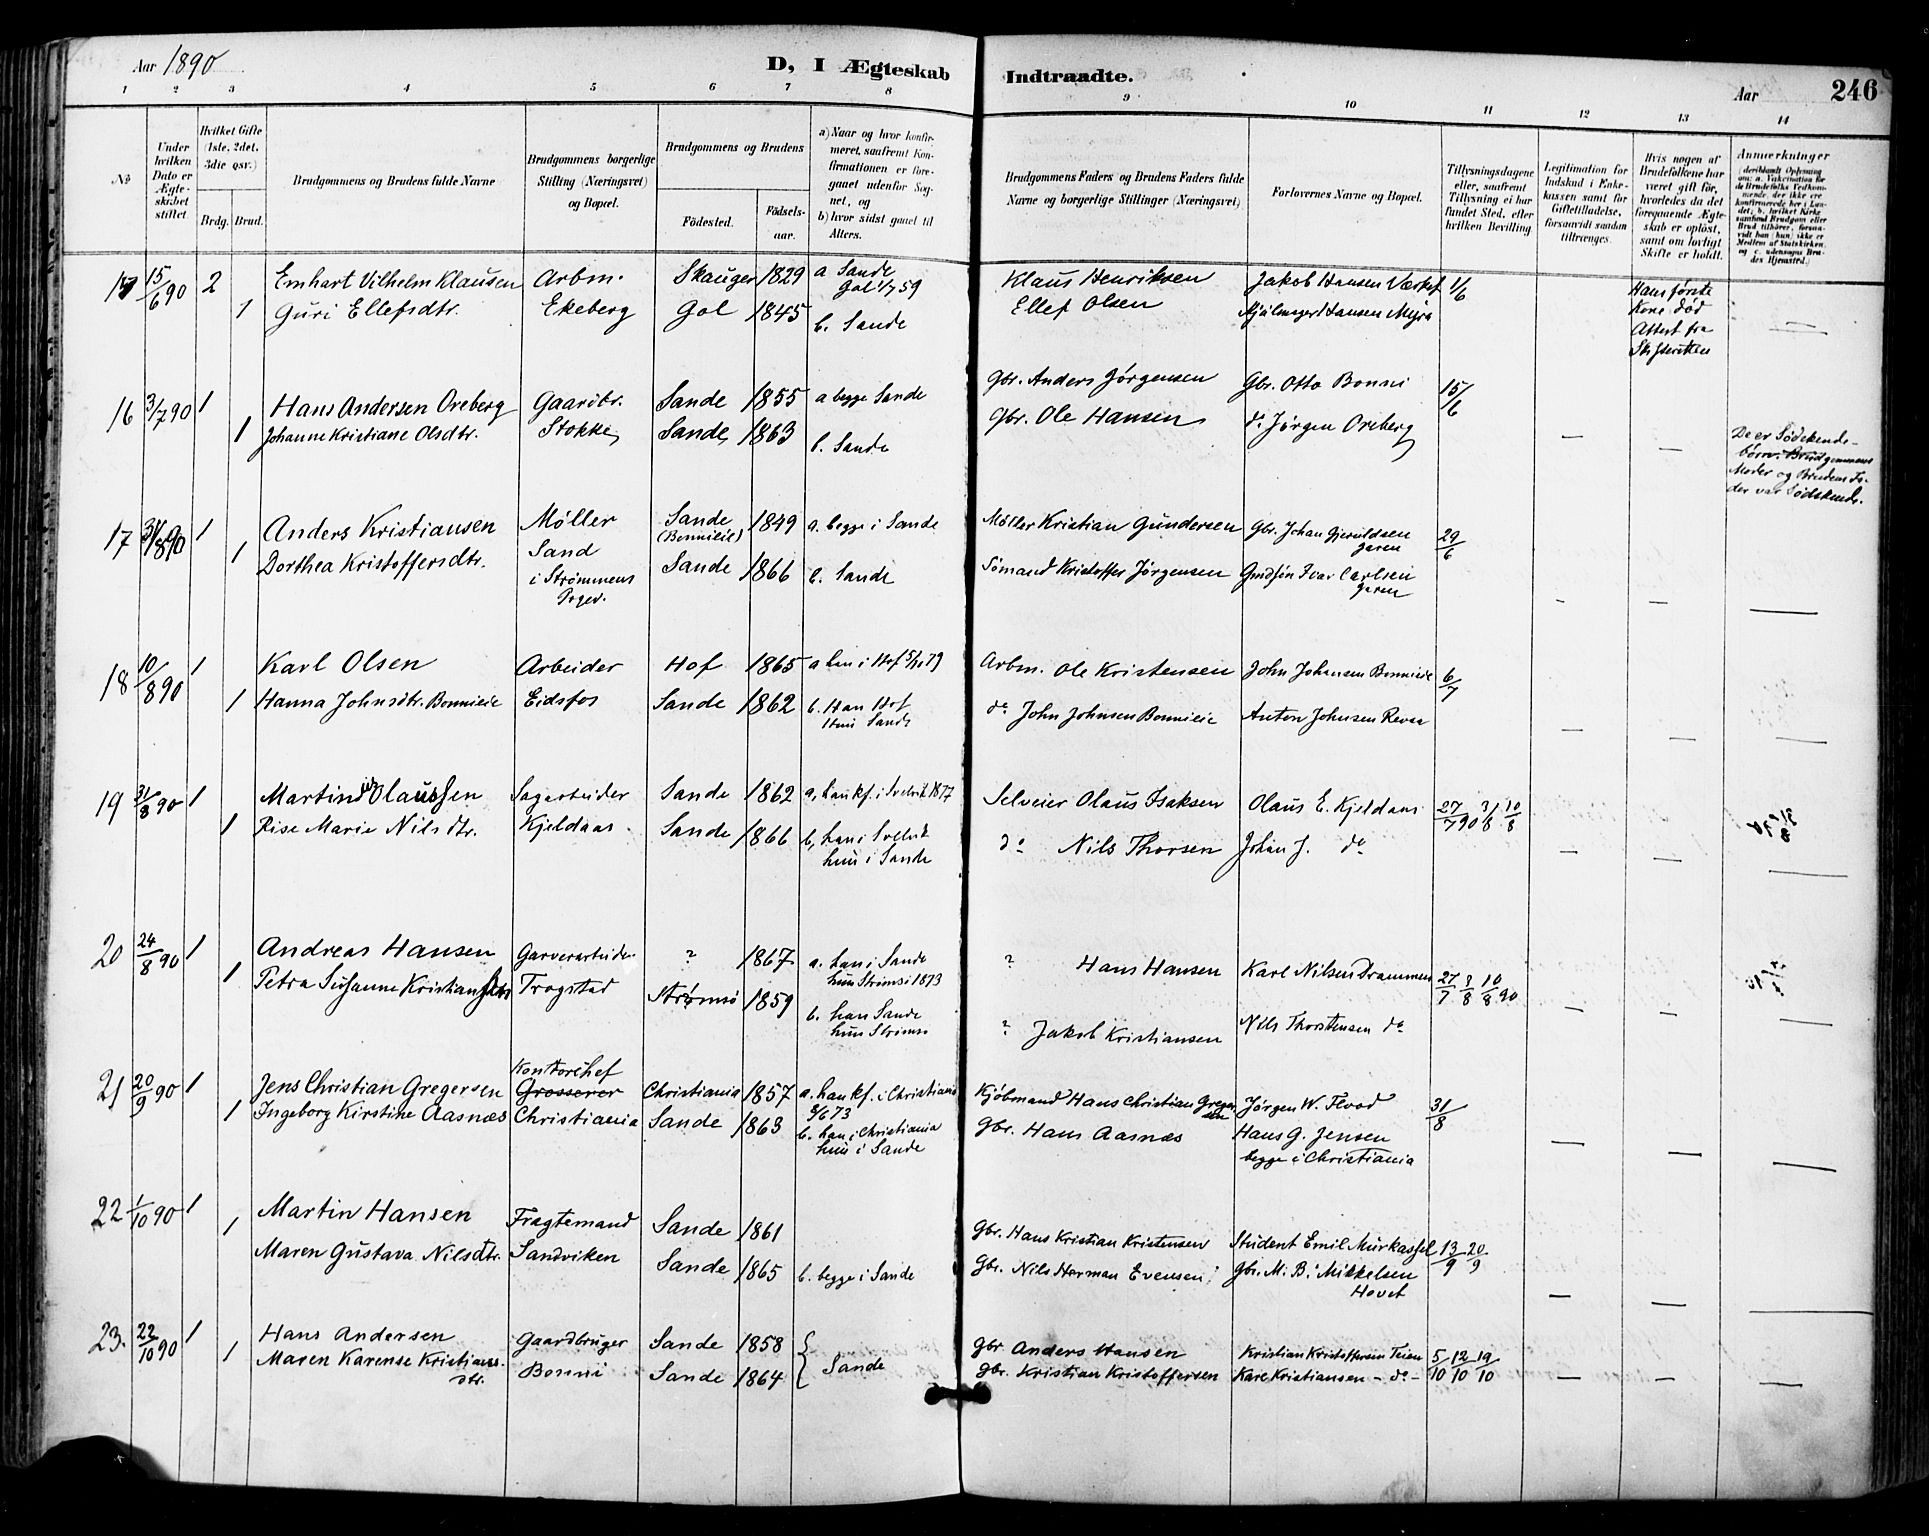 Aar 1890
D, I Ægteskab Indtraadte.
Aar 246
1 2 3 4 5 6 7 8 9 10 11 12 13 14
No
Under hvilken Dato er Ægteskabet stiftet.
Hvilket Gifte (1ste, 2det, 3die osv.)
Brdg. Brud.
Brudgommens og Brudens fulde Navne
Brudgommens borgerlige Stilling (Næringsvei) og Bopæl.
Brudgommens og Brudens
Fødested.
Fødselsaar.
a) Naar og hvor konfirmeret, saafremt Konfirmationen er foregaaet udenfor Sognet, og
b) hvor sidst gaaet til Alters.
Brudgommens Faders og Brudens Faders fulde Navne og borgerlige Stillinger (Næringsvei)
Forlovernes Navne og Bopæl.
Tillysningsdagene eller, saafremt Tillysning ei har fundet Sted, efter hvilken Bevilling
Legitimation for Indskud i Enkekassen samt for Giftetilladelse, forsaavidt saadan tiltrænges.
Hvis nogen af Brudefolkene har været gift før, hvorledes da det foregaaende Ægteskab er opløst, samt om lovligt Skifte er holdt.
Anmærkninger
15/6 90 2 Emhart Vilhelm Klausen Arbm. Skauger 1829 a Sande Klaus Henriksen Jakob Hansen 1/6 Hans første
1 Guri Ellefsdtr. Ekeberg Gol 1845 Gol 1/7 59 Ellef Olsen Hansen Myra Kone død
b. Sande Attest fra
16 3/7 90 1 Hans Andersen Oreberg Gaardbr. Sande 1855 a begge Sande Gbr. Anders Jørgensen Gbr. Otto Bonni 15/6
1 Johanne Kristiane Olsdtr. Stokke Sande 1863 b. Sande Gbr. Ole Hansen do Jørgen Oreberg
De er Sødskende-
børn. Brudgommens
Moder og Brudens Fa-
der var Sødskende.
17 31/8 90 1 Anders Kristiansen Møller Sande (Bonnieie) 1849 a. begge i Sande Møller Kristian Gundersen Gbr. Johan Gjeruldsen Jaren 29/6
1 Dorthea Kristoffersdtr. Sand i Strømmens Sande 1866 b. Sande Sømand Kristoffer Jørgensen Ivar Carlsen Jaren
18 10/8 90 1 Karl Olsen Arbeider Hof 1865 a han i Hof 5/10 79 Arbm. Ole Kristensen John Johansen Bonnieie 6/7
1 Hanna Johnsdtr. Bonnieie Eidsfos Sande 1862 b. Han Hof do John Johnsen Bonnieie Anton Johnsen Revaa
Hun Sande
19 31/8 90 1 Martin Olaussen Sagarbeider Sande 1862 a, han kf. i Svelvik 1877 Selveier Olaus Isaksen Olaus E. Kjeldaas 27/7 90 3/8 10/8
1 Rise Marie Nilsdtr. Kjeldaas Sande 1866 b, han i Svelvik do Nils Thorsen Johan J. do
hun i Sande
20 24/8 90 1 Andreas Hansen Garverarbeider ? 1867 a. han i Sande ? Hans Hansen Karl Nilsen Drammen 27/7 3/8 10/8 90
1 Petra Susanne Kristiansen Trogstad Strømsø 1859 hun Strømsø 1873
b. han Sande ? Jakob Kristiansen Nils Thorstensen do
hun Strømsø
21 20/9 90 1 Jens Christian Gregersen Kontorchef Grosserer Christiania 1857 a. han kf. i Christiania Kjøbmand Hans Christian Gregersen Jørgen W. Flood 31/8
1 Ingeborg Kirstine Aasnæs Christiania Sande 1863 b. han i Christiania Gbr. Hans Aasnæs Hans G. Jensen
hun i Sande begge i Christiania
22 1/10 90 1 Martin Hansen Fragtemand Sande 1861 Gbr. Hans Kristian Kristensen Student Emil Murkassel 13/9 20/9
1 Maren Gustava Nilsdtr. Sandviken Sande 1865 b. begge i Sande Gbr. Nils Herman Evensen Gbr. M. B. Mikkelsen
Hovet
23. 22/10 90 1 Hans Andersen Gaardbruger Sande 1858 Sande Gbr Anders Hansen Kristian Kristoffersen Teien 5/10 12/10 19/10
1 Maren Karense Kristiansdtr. Bonni Sande 1864 Gbr. Kristian Kristoffersen Kare Kristiansen - do -